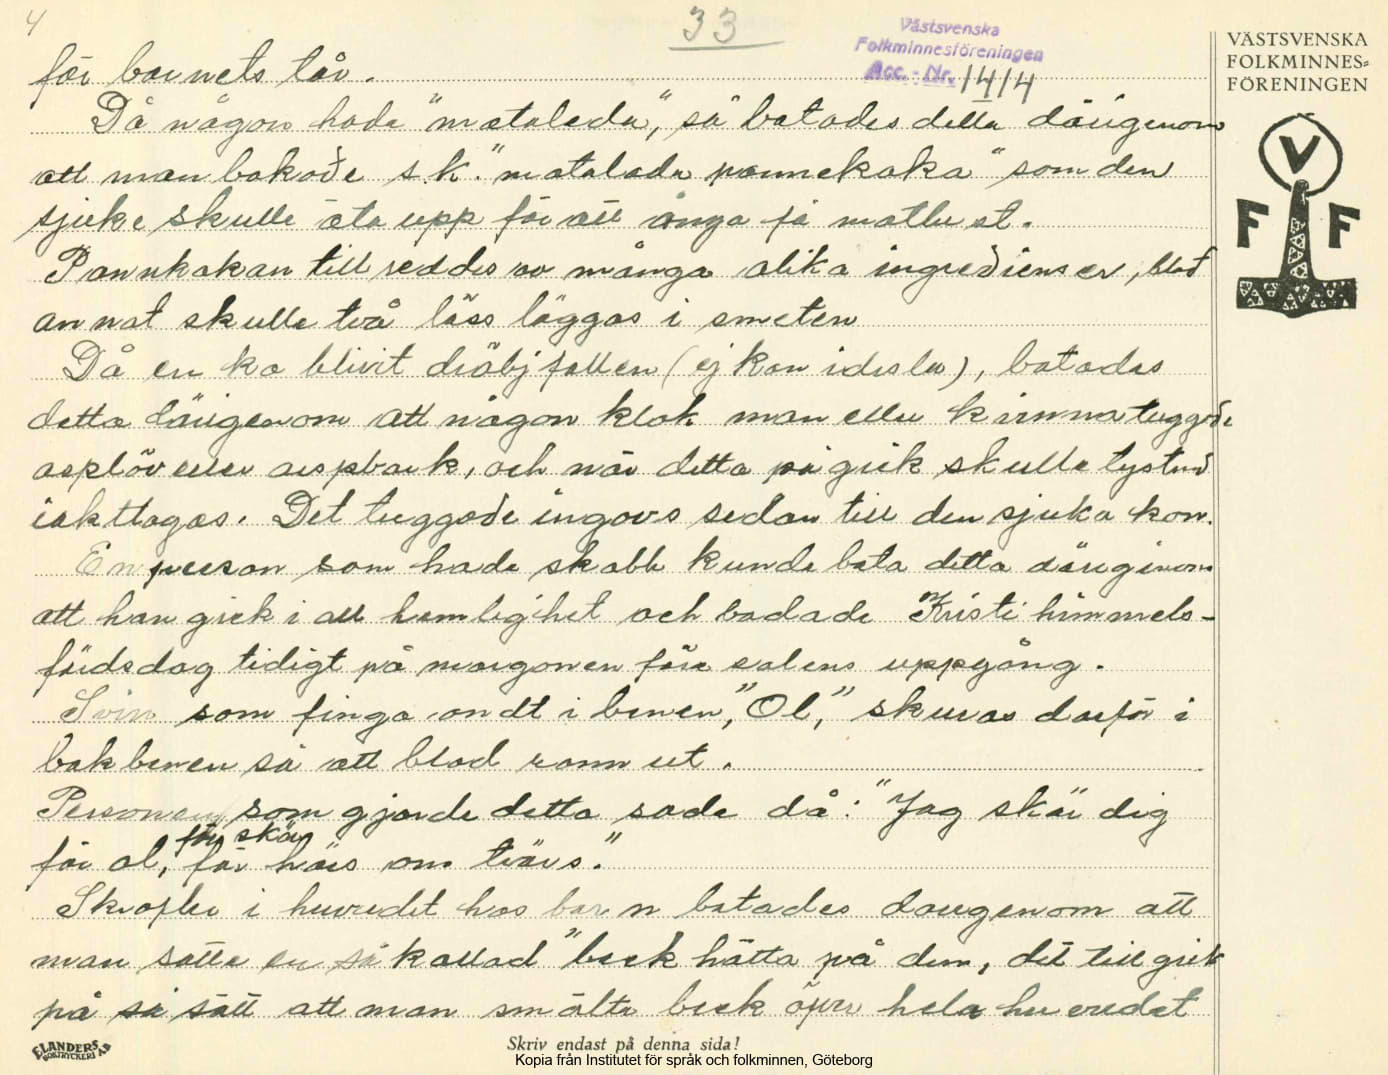 4
33
Västsvenska
Folkminnesföreningen
Acc. - Nr. 1414
VÄSTSVENSKA
FOLKMINNES=
FÖRENINGEN
V
F F
för barnets tår.
Då någon hade "mataleda", så botades detta därigenom
att man bakade s.k. "mataleda pannekaka" som den
sjuke skulle äta upp för att ånga få matlust.
Pannkakan till reddes av många olika ingredienser, blod
annat skulle två löss läggas i smeten
Då en ko blivit dräbjfallen (ej kan idisla), botades
detta därigenom att någon klok man eller kvinna tuggade
asplöv eller aspbark, och när detta pågick skulle tystnad
iakttagas. Det tuggade ingavs sedan till den sjuka kon.
En person som hade skabb kunde bota detta därigenom
att han gick i all hemlighet och badade Kristi himmels-
färdsdag tidigt på morgonen före solens uppgång.
Svin som finga ondt i benen, "Ol," skuras darför i
bakbenen så att blod rann ut.
Personen som gjorde detta sade då: "Jag skär dig
för ol, för skär
för hårs om tvärs."
Skrofler i huvudet hos barn botades darigenom att
man satte en så kallad "beck hätta på dem, det till gick
på så sätt att man smälte beck över hela huvudet
ELANDERS
BOKTRYCKERI AB
Skriv endast på denna sida!
Kopia från Institutet för språk och folkminnen, Göteborg